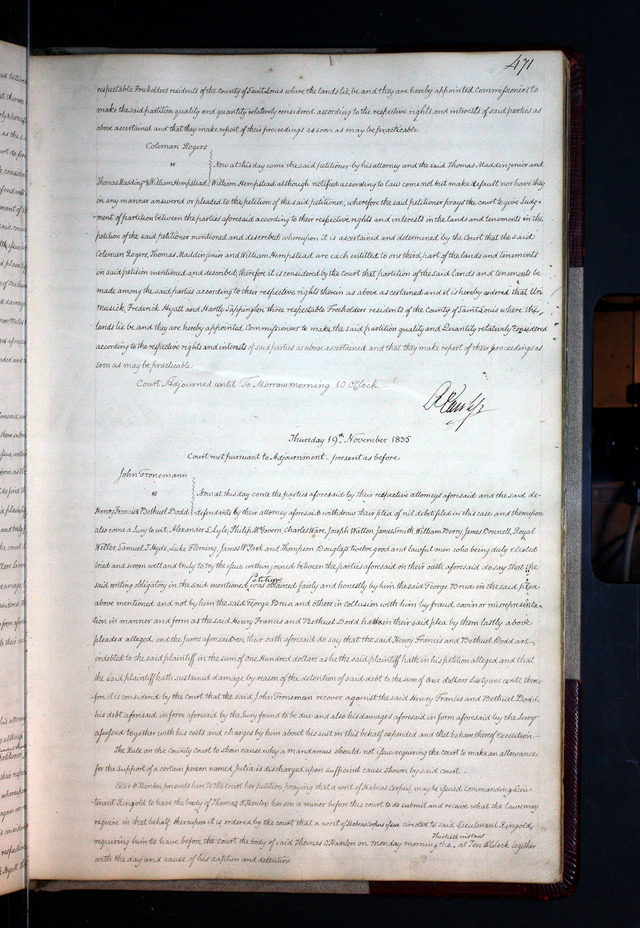 471
respectable Freeholders residents of the County of Saint Louis where the lands lie, be and they are hereby appointed Commissioners to
make the said partition quality and quantity relatively considered according to the respective rights and interests of said parties as
above ascertained and that they make report of their proceedings as soon as may be practicable.
Coleman Rogers
vs
Thomas Madding & William Hempstead
Now at this day come the said petitioner by his attorney and the said Thomas Maddin junior and
William Hempstead although notified according to law come not but make default nor have they
in any manner answered or pleaded to the petition of the said petitioner, wherefore the said petitioner prays the court to give Judg-
-ment of partition between the parties aforesaid according to their respective rights and interests in the lands and tenements in the
petition of the said petitioner mentioned and described whereupon it is ascertained and determined by the Court that the said
Coleman Rogers, Thomas Maddin junior and William Hempstead are each entitled to one third part of the lands and tenements
in said petition mentioned and described, therefore it is considered by the court that partition of the said lands and tenements be
made among the said parties according to their respective rights therein as above ascertained and it is hereby ordered that Uri
Musick, Frederick Hyatt and Hartly Sappington three respectable Freeholders residents of the County of Saint Louis where the
lands lie be and they are hereby appointed Commissioners to make the said partition quality and Quantity relatively Considered
according to the respective rights and interests of said parties as above ascertained and that they make report of their proceedings as
soon as may be practicable.
Court Adjourned until To Morrow morning 10 O'Clock
Thursday 19th November 1835
Court met pursuant to Adjournment present as before
John Fronemann
vs
Henry Francis & Bethuel Dodd
Now at this day come the parties aforesaid by their respective attorneys aforesaid and the said de-
-fendants by their attorney aforesaid withdraw their plea of nil debet filed in this case and thereupon
also come a Jury to wit, Alexander L Lyle, Philip McGovern, Charles Ware, Joseph Walton, James Smith, William Berry, James Donnell, Royal
Weller, Samuel T. Hyde, Luke Fleming, James W Park and Thompson Douglass twelve good and lawful men who being duly elected
tried and sworn well and truly to try the issue within joined between the parties aforesaid on their oath aforesaid do say that the
said writing obligatory in the said Petition mentioned, was obtained fairly and honestly by him the said George Brua in the said plea
above mentioned and not by him the said George Brua and others in collusion with him by fraud covin or misrepresenta-
-tion in manner and form as the said Henry Francis and Bethuel Dodd hath in their said plea by them lastly above
pleaded alleged, and the Jurors aforesaid on their oath aforesaid do say that the said Henry Francis and Bethuel Dodd are
indebted to the said plaintiff in the sum of one Hundred dollars as he the said plaintiff hath in his petition alleged and that
the said plaintiff hath sustained damage by reason of the detention of said debt to the sum of one dollars sixty one cents, there-
fore it is considered by the court that the said John Froneman recover against the said Henry Francis and Bethuel Dodd
his debt aforesaid in form aforesaid by the Jury found to be due and also his damages aforesaid in form aforesaid by the Jury
assessed together with his costs and charges by him about his suit in this behalf expended and that he have thereof execution
The Rule on the County court to show cause why a mandamus should not issue requiring the court to make an allowance
for the support of a certain person named Julia is discharged upon sufficient cause shown by said court.
O'Hanlon presents here to the court her petition praying that a writ of Habeas Corpus may be issued Commanding Lieu-
tenant Ringold to have the body of Thomas O'Hanlon her son a minor before this court to do submit and receive what the laws may
require in that behalf, thereupon it is ordered by the court that a writ of Habeas Corpus issue directed to said Lieutenant Ringold,
requiring him to have before the court the body of said Thomas O'Hanlon on monday morning the Thirtieth instant, at Ten O'Clock together
with the day and cause of his caption and detention